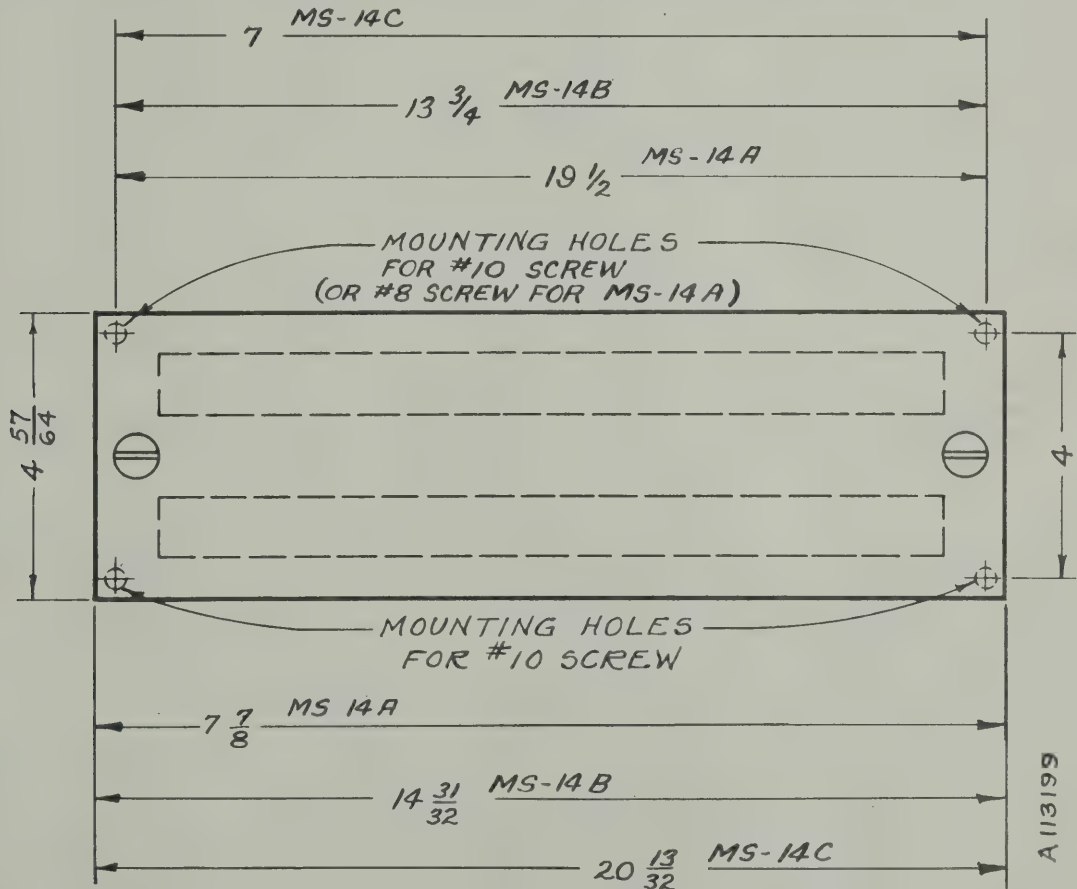 7 MS-14C
13 3/4 MS-14B
19 1/2 MS-14A
MOUNTING HOLES
FOR #10 SCREW
(OR #8 SCREW FOR MS-14A)
4 57/64
4
MOUNTING HOLES
FOR #10 SCREW
7 7/8 MS 14A
14 31/32 MS-14B
20 13/32 MS-14C
A113199